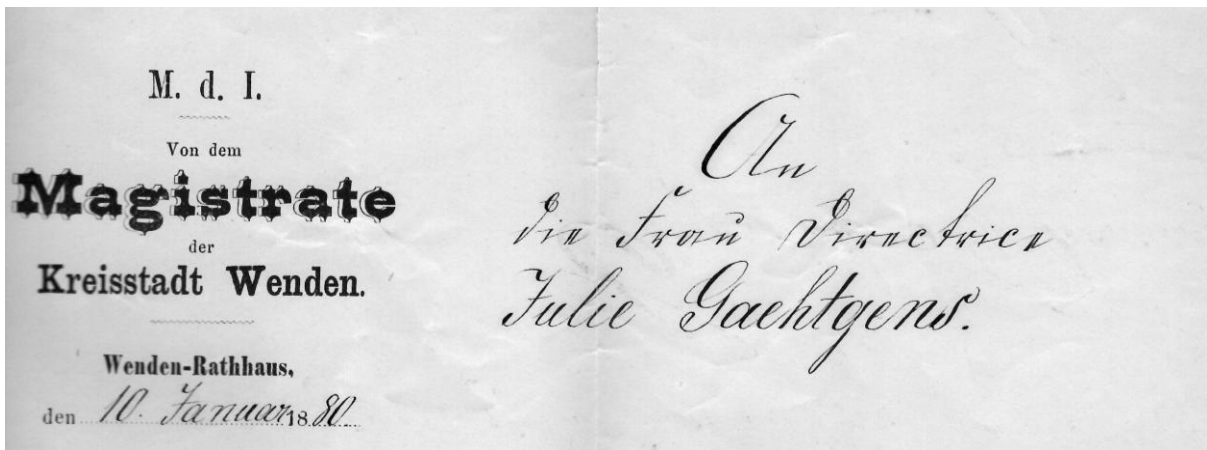 M. d. I.
Von dem
Magistrate
der
Kreisstadt Wenden.
Wenden-Rathhaus,
den 10. Januar 1880.
An
die Frau Directrice
Julie Gaehtgens.